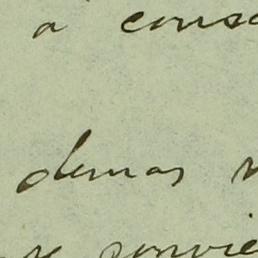 a cons
demas
y convie